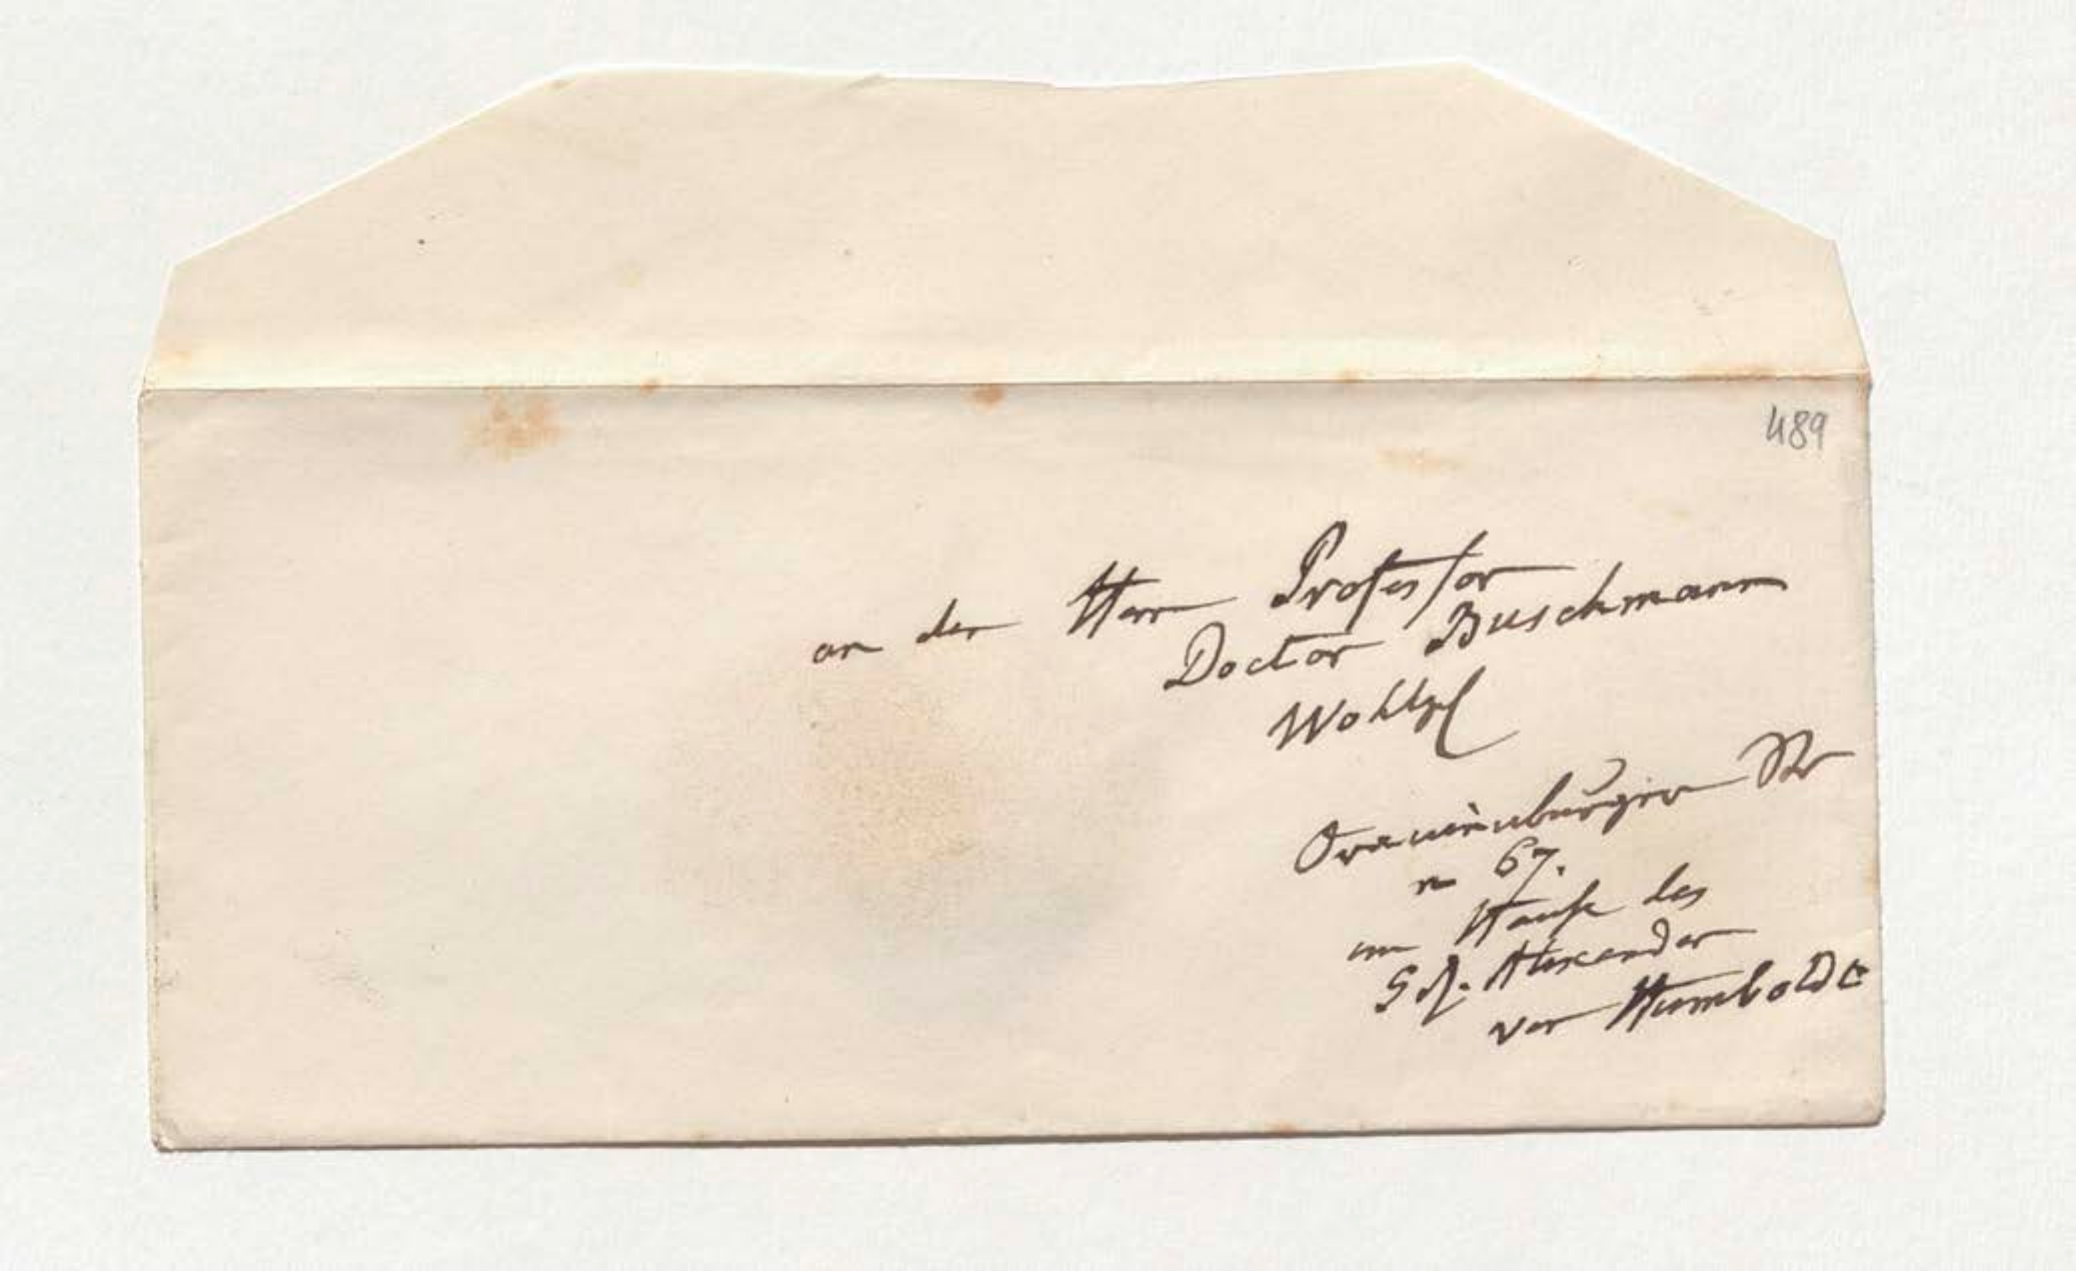 489
an den Herrn Professor
Doctor Buschmann
Wohlg
Oranienburger Str
n 67.
im Hause des
Alexander
von Humboldt